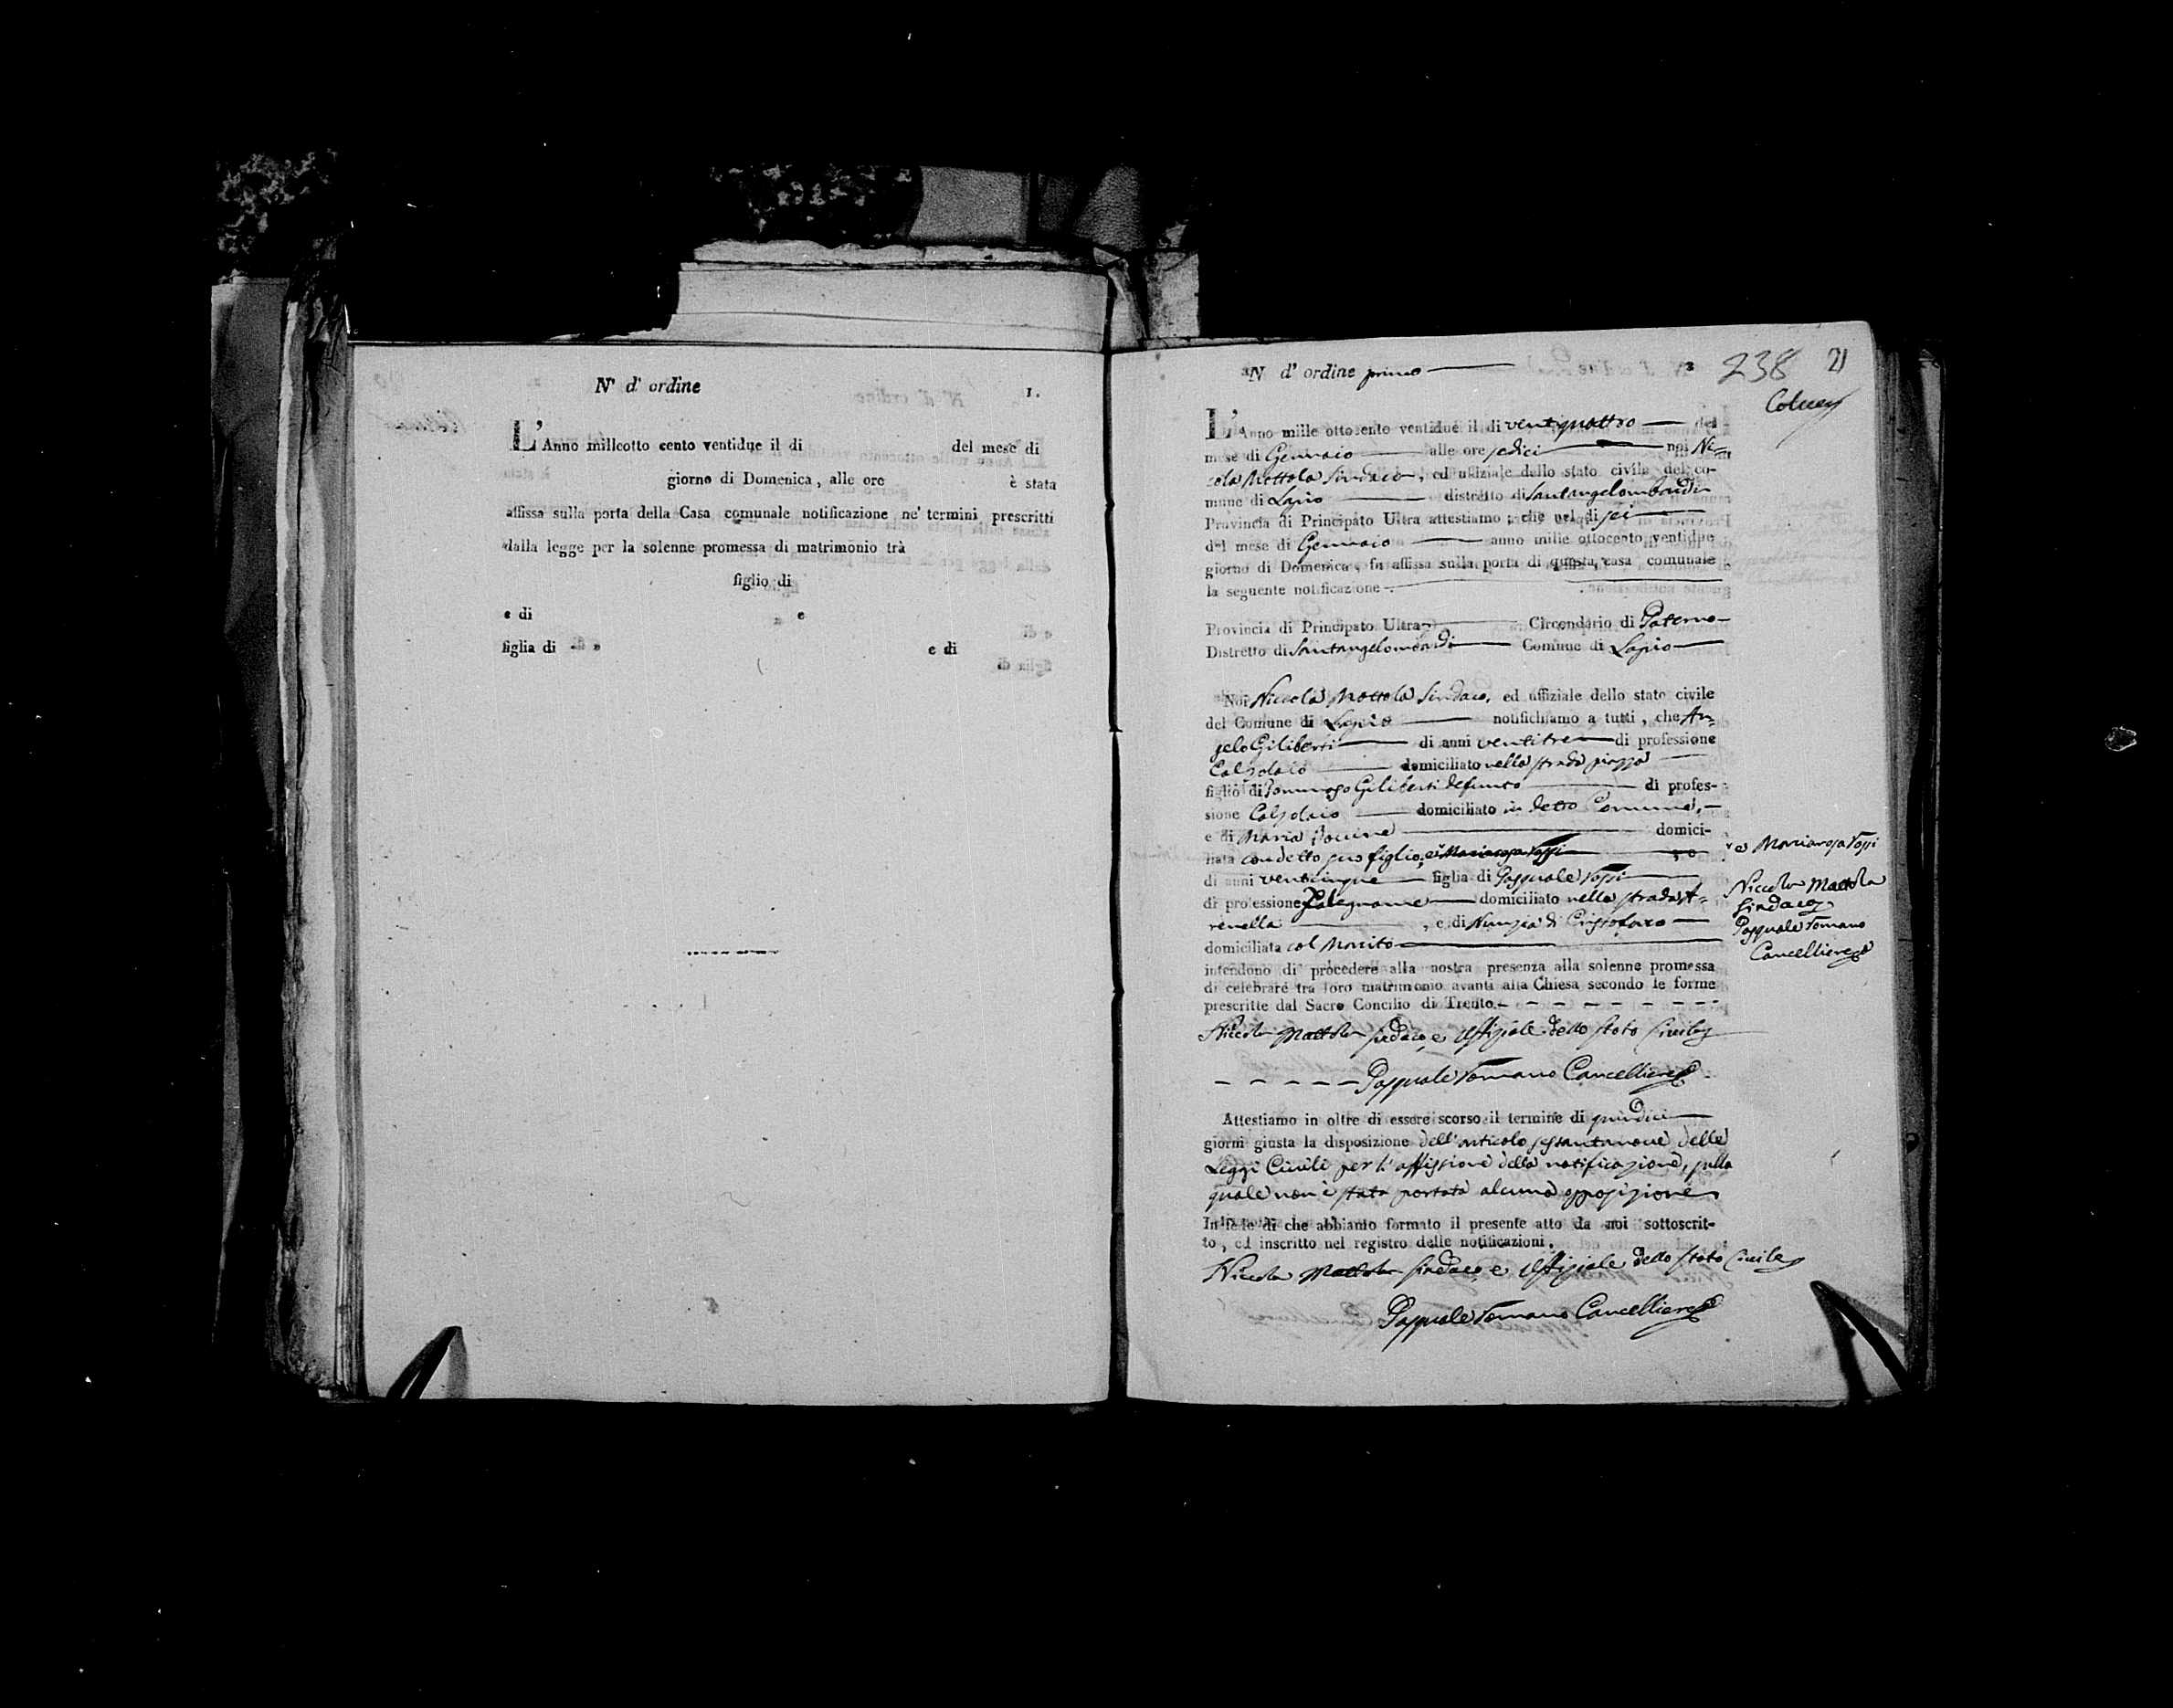 N° d' ordine
1.
L'Anno millcotto cento ventidue il di del mese di
giorno di Domenica, alle ore è stata
affissa sulla porta della Casa comunale notificazione ne' termini prescritti
dalla legge per la solenne promessa di matrimonio trà
figlio di
e di e
figlia di e di
N d' ordine primo
2
238
21
L'Anno mille ottocento ventidue il di ventiquattro del
mese di Gennaio alle ore sedici noi Ni=
cola Mottola Sindaco, ed uffiziale dello stato civile del co-
mune di Lapio distretto di Santangelombardi
Provincia di Principato Ultra attestiamo, che nel di sei
del mese di Gennaio anno mille ottocento ventidue
giorno di Domenica, fu affissa sulla porta di questa casa comunale
la seguente notificazione.
Provincia di Principato Ultra Circondario di Paterno
Distretto di Santangelombardi Comune di Lapio
Noi Niccola Mottola Sindaco, ed uffiziale dello stato civile
del Comune di Lapio notifichiamo a tutti, che An=
gelo Giliberti di anni ventitre di professione
Calzolaio domiciliato nella strada piazza
figlio di Tommaso Giliberti defunto di profes-
sione Calzolaio domiciliato in detto Comune,
e di Maria domici-
liata con detto suo figlio, e Mariarosa Tossi, e
e Mariarosa Tossi
di anni venticinque figlia di Pasquale Tossi
Niccola Mottola
Sindaco
di professione Falegname domiciliato nella strada A=
Pasquale Romano
renella, e di Nunzia di Cristofaro
Cancelliere
domiciliata col Marito
intendono di procedere alla nostra presenza alla solenne promessa
di celebrare tra loro matrimonio avanti alla Chiesa secondo le forme
prescritte dal Sacro Concilio di Trento.
Niccola Mottola Sindaco, e Uffiziale dello stato Civile
Pasquale Romano Cancelliere
Attestiamo in oltre di essere scorso il termine di quindici
giorni giusta la disposizione dell'articolo sessantanove delle
Leggi Civili per l'affissione della notificazione, sulla
quale non è stata portata alcuna opposizione
In fede di che abbiamo formato il presente atto da noi sottoscrit-
to, ed inscritto nel registro delle notificazioni.
Niccola Mottola Sindaco, e Uffiziale dello stato Civile
Pasquale Romano Cancelliere